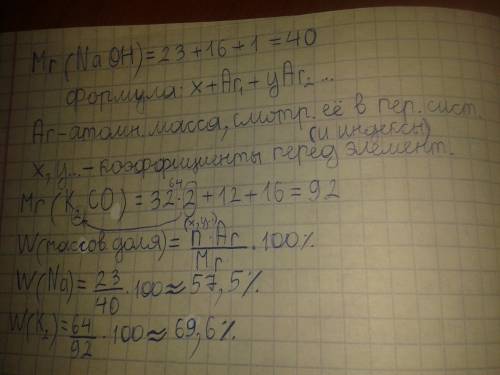 Mr(NaOH)=23+16+1=40
Формула: x+Ar₁+yAr₂...
Ar-атомн. масса, смотр. её в пер. сист.
x, y...-коэффициенты перед элемент.
(и индексы)
64
Mr(K₂CO)=32·2+12+16=92
(x,y.)
W(массов доля)=n·Ar/Mr·100%
W(Na)=23/40·100≈57,5%
W(K₂)=64/92·100≈69,6%